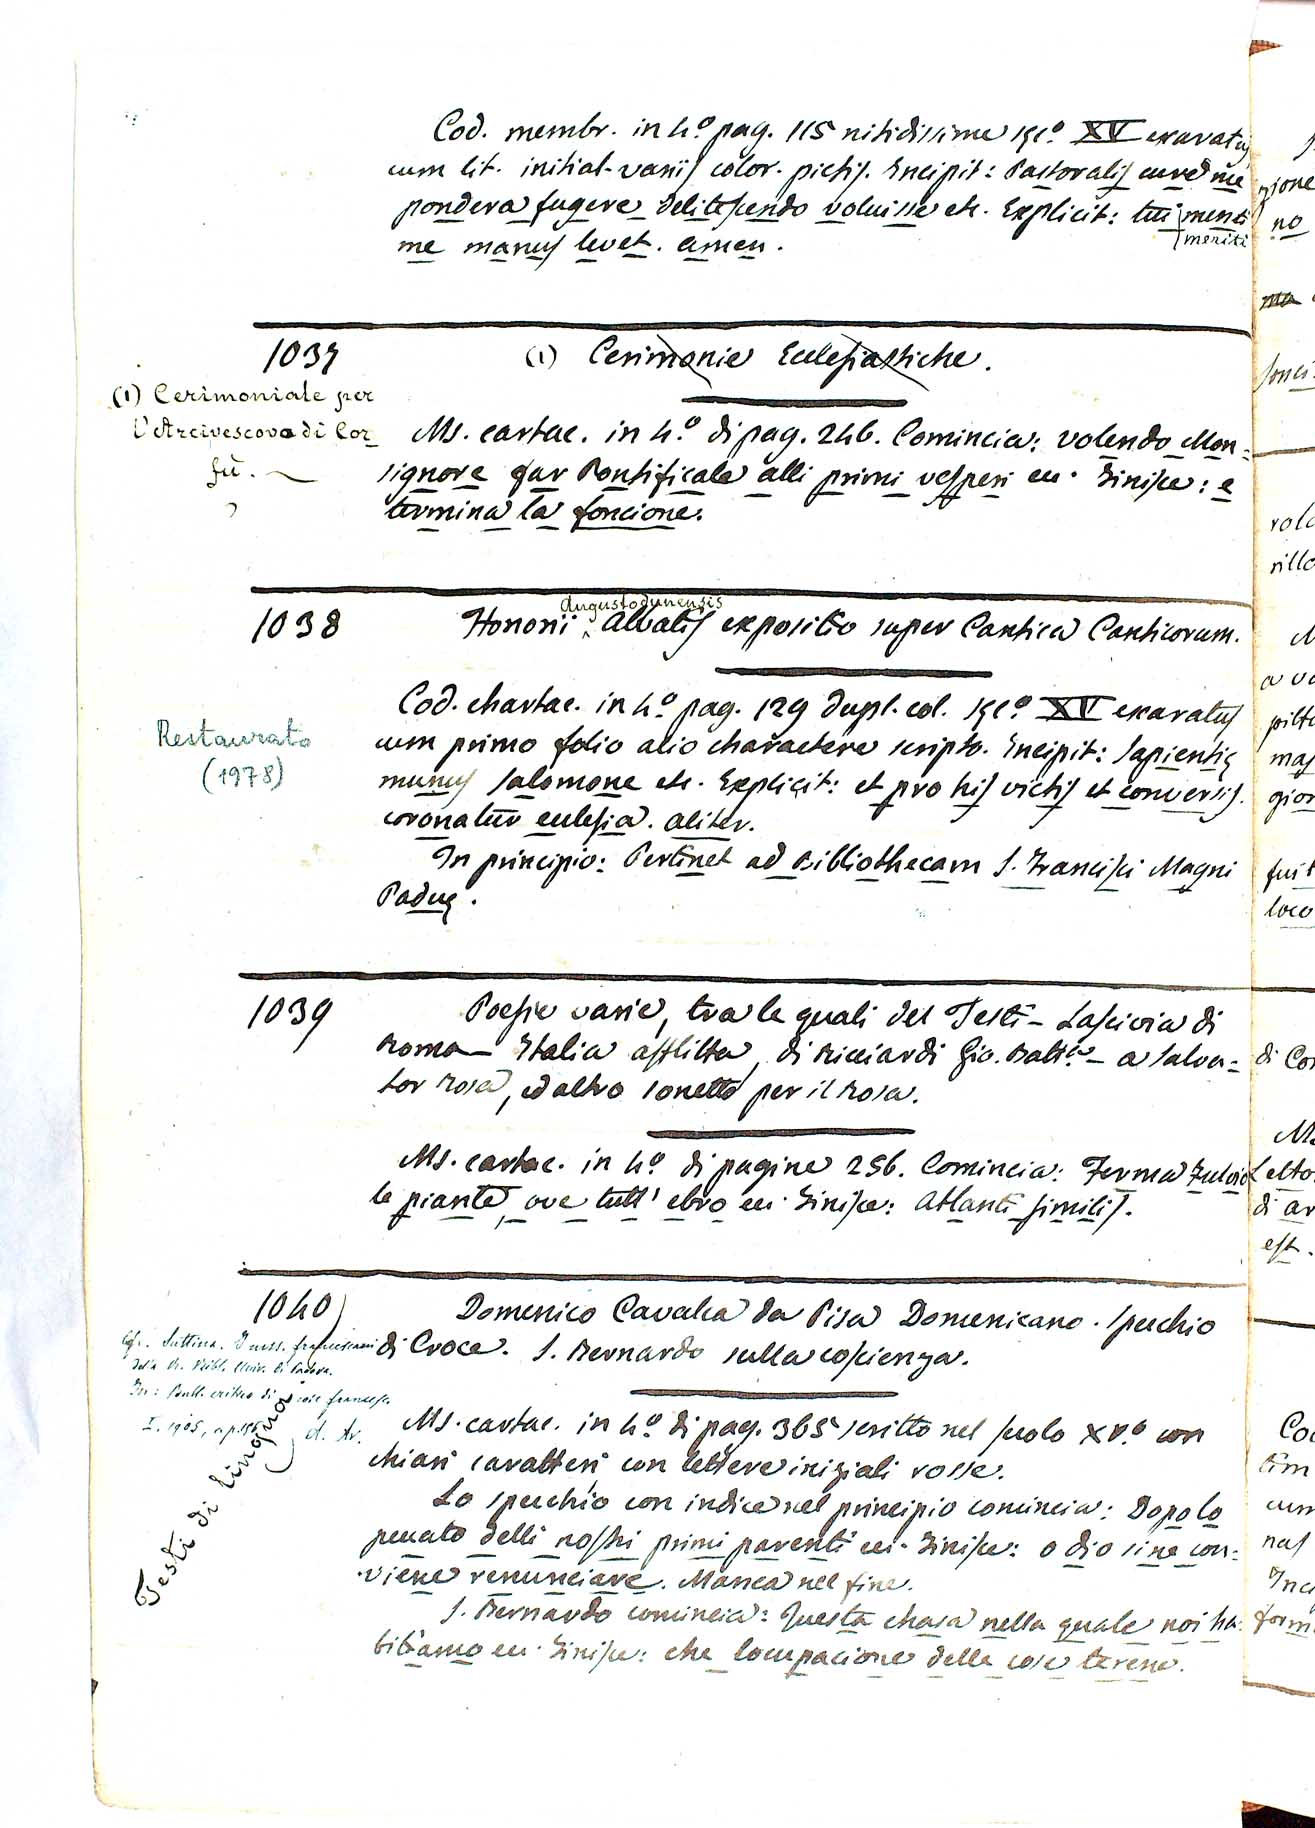 Cod. membr. in 4.º pag. 115 nitidissime sęc.º XV exaratus
cum lit. initial. variis color. pictis. Incipit: Pastoralis curę me
pondera fugere delitescendo voluisse etc. Explicit: tui menti
meriti
me manus levet. amen.
1037
(1) Cerimonie Ecclesiastiche.
(1) Cerimoniale per
l'Arcivescovo di Cor_
fù.
Ms. cartac. in 4.º di pag. 246. Comincia: volendo Mon=
signore far Pontificale alli primi vesperi ec. Finisce: e
termina la foncione.
1038
Augustodunensis
Honorii Abatis expositio super Cantica Canticorum.
Restaurato
(1978)
Cod. chartac. in 4.º pag. 129 dupl. col. sęc.º XV exaratus
cum primo folio alio charactere scripto. Incipit: Sapientię
munus Salomone etc. Explicit: et pro his victis et conversis
coronatur ecclesia. aliter.
In principio: Pertinet ad Bibliothecam S. Francisci Magni
Paduę.
1039
Poesie varie, tra le quali del Testi - Lascivia di
Roma - Italia afflitta, di Ricciardi Gio. Batt.ª - a Salva=
tor Rosa, ed altro sonetto per il Rosa.
Ms. cartac. in 4.º di pagine 256. Comincia: Ferma Fulvio
le piante, ove tutt' ebro ec. Finisce: Atlanti similis.
1040
Domenico Cavalca da Pisa Domenicano. Specchio
di Croce. S. Bernardo sulla coscienza.
Cfr. Suttina. I mss. francescani
della R. Bibl. Univ. di Padova.
In: Bull. critico di cose francesc.
I. 1905,
Testi di lingua
Ms. cartac. in 4.º di pag. 365 scritto nel secolo XV.º con
chiari caratteri con lettere iniziali rosse.
Lo specchio con indice nel principio comincia: Dopo lo
peccato delli nostri primi parenti ec. Finisce: o dio si ne con=
viene renunciare. Manca nel fine.
S. Bernardo comincia: Questa chasa nella quale noi ha=
bitiamo ec. Finisce: che locupacione delle cose terene.